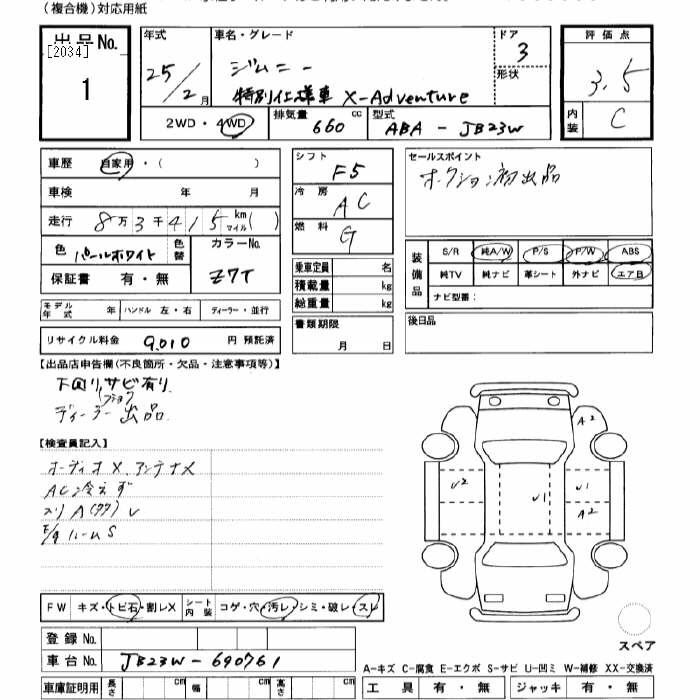 (複合機)対応用紙
出品No.
[2034]
1
年式
25/2月
車名・グレード
ジムニー
特別仕様車 X-Adventure
ドア
3
形状
評価点
3.5
内装
C
2WD・4WD
排気量
660
cc
型式
ABA-JB23W
車歴 自家用・( )
車検 年 月
走行 8万3千415km
マイル( )
色 パールホワイト
色替
カラーNo.
Z7T
保証書 有・無
モデル年式 年 ハンドル 左・右 ディーラー・並行
リサイクル料金 9,010 円 預託済
シフト F5
冷房 AC
燃料 G
乗車定員 名
積載量 kg
総重量 kg
書類期限
月 日
セールスポイント
オークション初出品
装備品
S/R 純A/W P/S P/W ABS
純TV 純ナビ 革シート 外ナビ エアB
ナビ型番:
後日品
【出品店申告欄(不良箇所・欠品・注意事項等)】
下回りサビ有り
ディーラー出品
【検査員記入】
オーディオX アンテナX
AC冷えず
ルームS
A2
U2
U1
U1
A2
FW キズ・トビ石・割レX
シート内装 コゲ・穴・汚レ・シミ・破レ・スレ
登録No.
車台No. JB23W-690761
車庫証明用 長さ cm 幅 cm 高さ cm
スペア
A-キズ C-腐食 E-エクボ S-サビ U-凹ミ W-補修 XX-交換済
工具 有・無 ジャッキ 有・無